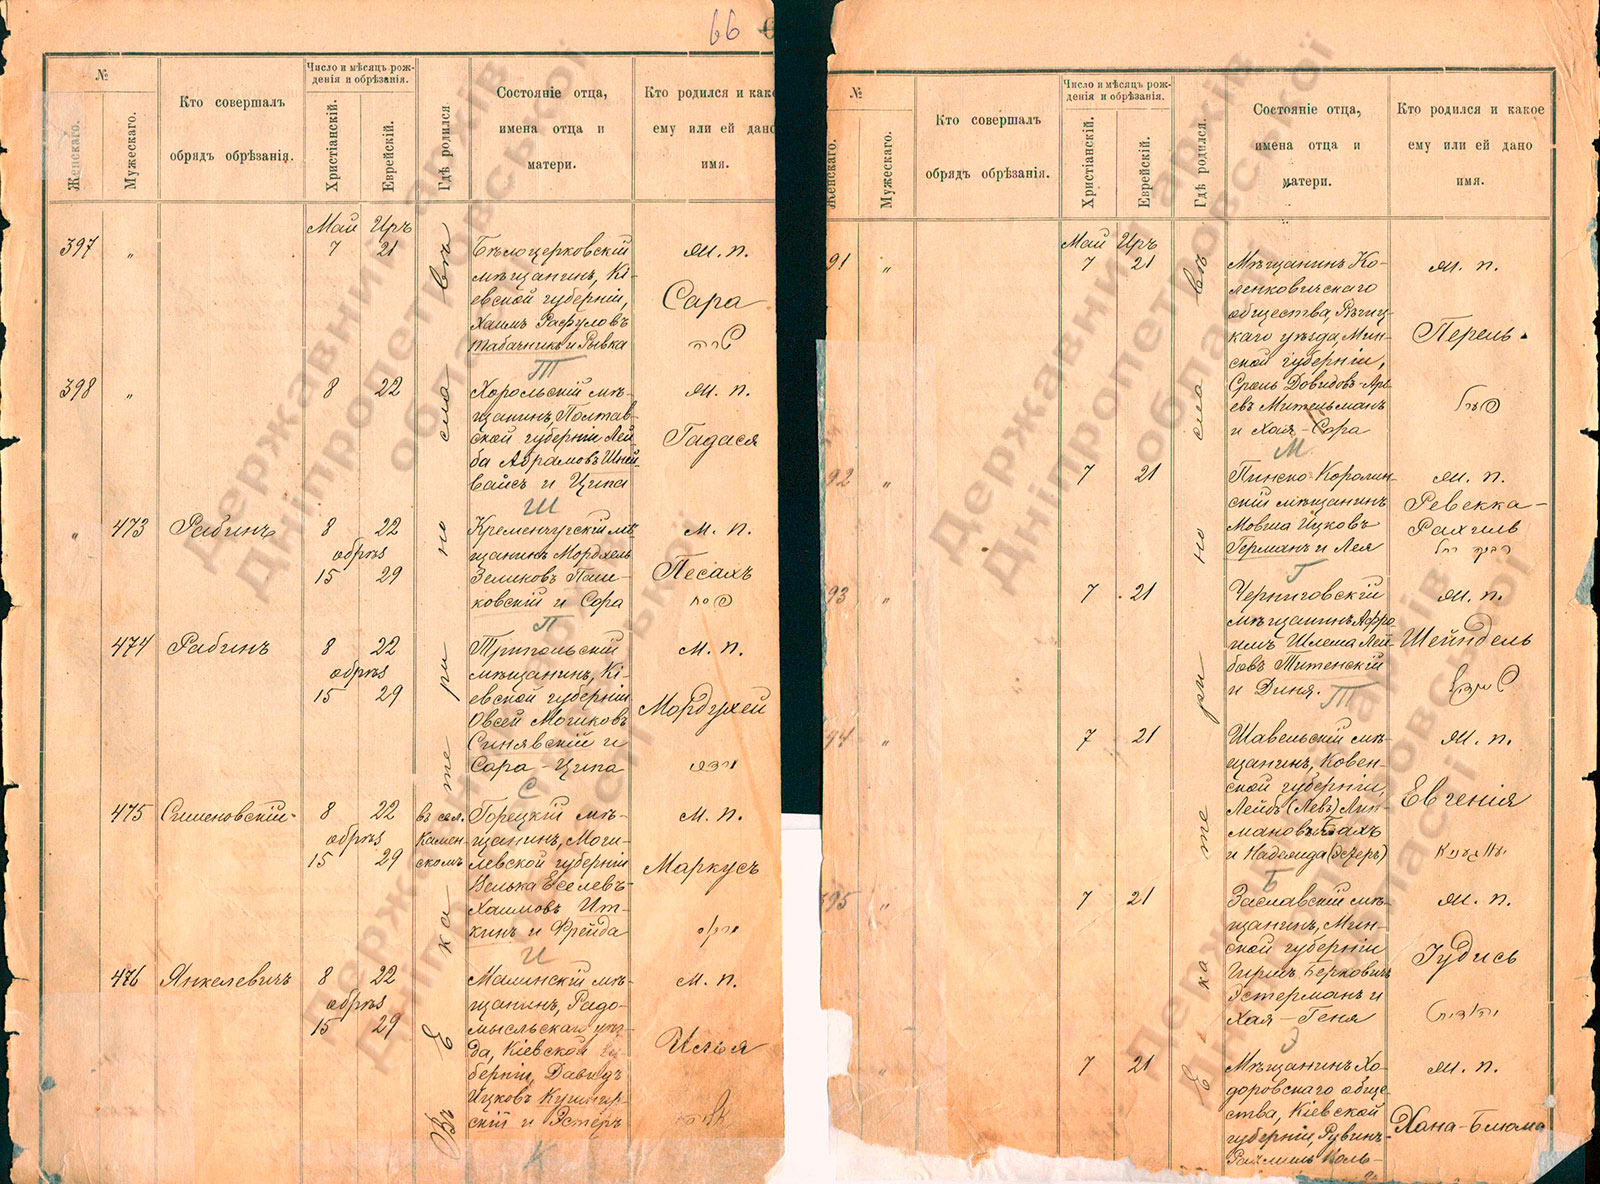 66
№
Женскаго.
Мужескаго.
Кто совершалъ
обрядъ обрѣзанія.
Число и мѣсяцъ рож-
денія и обрѣзанія.
Христіанскій.
Еврейскій.
Гдѣ родился
Состояніе отца,
имена отца и
матери.
Кто родился и как
ему или ей дано
имя.
Въ Екатеринославѣ
Май Иръ
397 „ 7 21
Бѣлоцерковскій
мѣщанинъ, Кі-
евской губерніи,
Хаимъ Рафуловъ
Табачникъ и Рывка
Т
м. п.
Сара
שרה
398 „ 8 22
Хорольскій мѣ-
щанинъ Полтав-
ской губерніи Лей-
ба Абрамовъ Шней-
вайсъ и Ципа
Ш
м. п.
Гадася
„ 473 Рабинъ 8 22
обрѣз
15 29
Кременчугскій мѣ-
щанинъ Мордхель
Зеликовъ Паш-
ковскій и Сора
П
м. п.
Песахъ
פסח
474 Рабинъ 8 22
обрѣз
15 29
Трипольскій
мѣщанинъ, Кі-
евской губерніи
Овсей Мошковъ
Синявскій и
Сара-Ципа
С
м. п.
Мордухей
מרדכי
475 Сименовскій 8 22
обрѣз
15 29
въ сел.
Камен-
скомъ
Горецкій мѣ-
щанинъ, Моги-
левской губерніи
Велька Еселевъ-
Хаимовъ Ит-
кинъ и Фрейда
И
м. п.
Маркусъ
476 Янкелевичъ 8 22
обрѣз
15 29
Малинскій мѣ-
щанинъ, Радо-
мысльскаго уѣз-
да, Кіевской гу-
берніи, Давидъ
Ицковъ Кушнир-
скій и Эстеръ
К
м. п.
Илья
№
Женскаго.
Мужескаго.
Кто совершалъ
обрядъ обрѣзанія.
Число и мѣсяцъ рож-
денія и обрѣзанія.
Христіанскій.
Еврейскій.
Гдѣ родился.
Состояніе отца,
имена отца и
матери.
Кто родился и какое
ему или ей дано
имя.
Въ Екатеринославѣ
Май Иръ
91 „ 7 21
Мѣщанинъ Ко-
ленковичскаго
общества, Рѣчиц-
каго уѣзда, Мин-
ской губерніи,
Сроль Довидовъ-Арь-
евъ Мительманъ
и Хая-Сора
М
м. п.
Перель
פערל
92 „ 7 21
Пинско-Каролин-
скій мѣщанинъ
Мовша Ицковъ
Германъ и Лея
Г
м. п.
Ревекка-
Рахиль
רבקה רחל
93 „ 7 21
Черниговскій
мѣщанинъ Афро-
имъ Шлема Лей-
бовъ Титенскій
и Диня.
Т
м. п.
Шейндель
שיינדל
94 „ 7 21
Шавельскій мѣ-
щанинъ, Ковен-
ской губерніи,
Лейбъ (Левъ) Лип-
мановъ Бахъ
и Надежда (Эстеръ)
Б
м. п.
Евгенія
95 „ 7 21
Заславскій мѣ-
щанинъ, Мин-
ской губерніи
Гиршъ Берковичъ
Эстерманъ и
Хая-Геня
Э
м. п.
Іудись
יהודית
„ 7 21
Мѣщанинъ Хо-
доровскаго обще-
ства, Кіевской
губерніи, Рувинъ-
м. п.
Хана-Блюма
Державний архів
Дніпропетровської
області